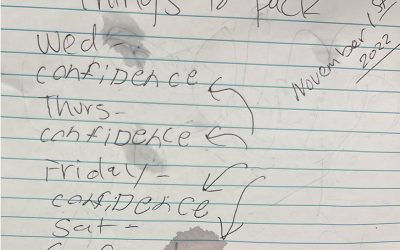 Things to pack
November 1st
2022
Wed -
confidence
Thurs -
confidence
Friday -
confidence
Sat -